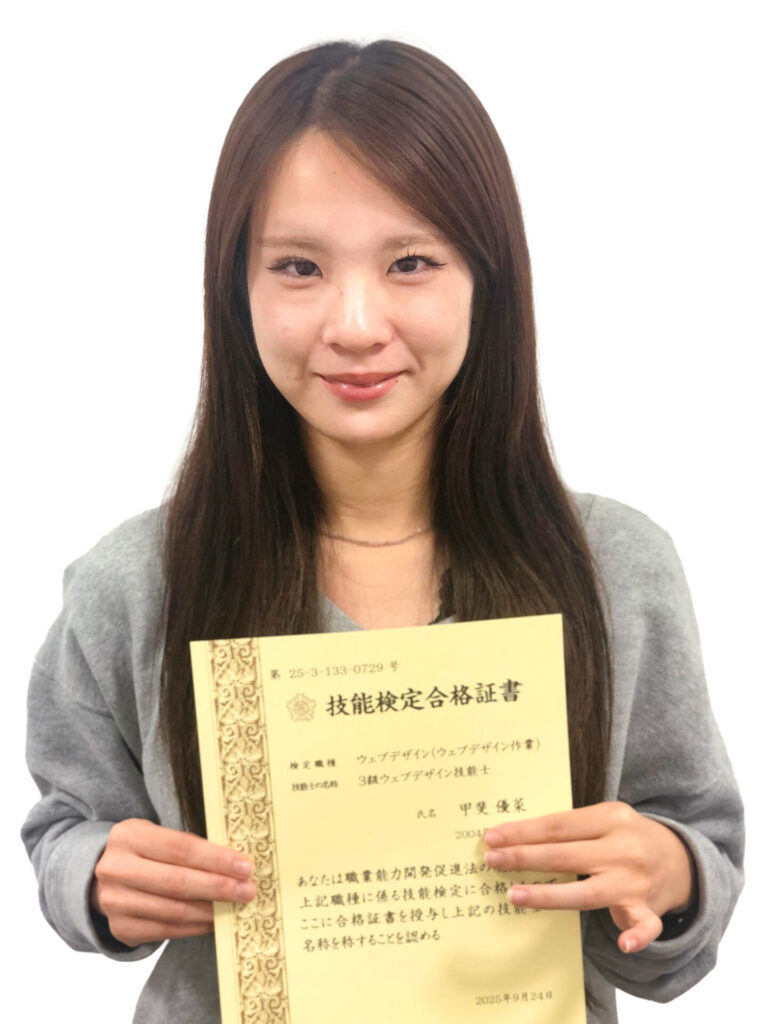 第 25-3-133-0729 号
技能検定合格証書
検定職種 ウェブデザイン(ウェブデザイン作業)
技能士の名称 3級ウェブデザイン技能士
氏名 甲斐 優菜
2004
あなたは職業能力開発促進法の
上記職種に係る技能検定に合格
ここに合格証書を授与し上記の技能
名称を称することを認める
2025年9月24日